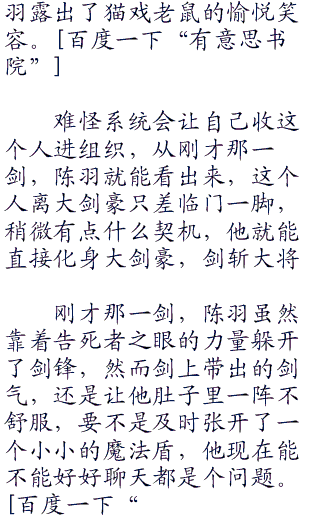 羽露出了猫戏老鼠的愉悦笑
容。[百度一下“有意思书
院”]
难怪系统会让自己收这
个人进组织，从刚才那一
剑，陈羽就能看出来，这个
人离大剑豪只差临门一脚，
稍微有点什么契机，他就能
直接化身大剑豪，剑斩大将
刚才那一剑，陈羽虽然
靠着告死者之眼的力量躲开
了剑锋，然而剑上带出的剑
气，还是让他肚子里一阵不
舒服，要不是及时张开了一
个小小的魔法盾，他现在能
不能好好聊天都是个问题。
[百度一下“